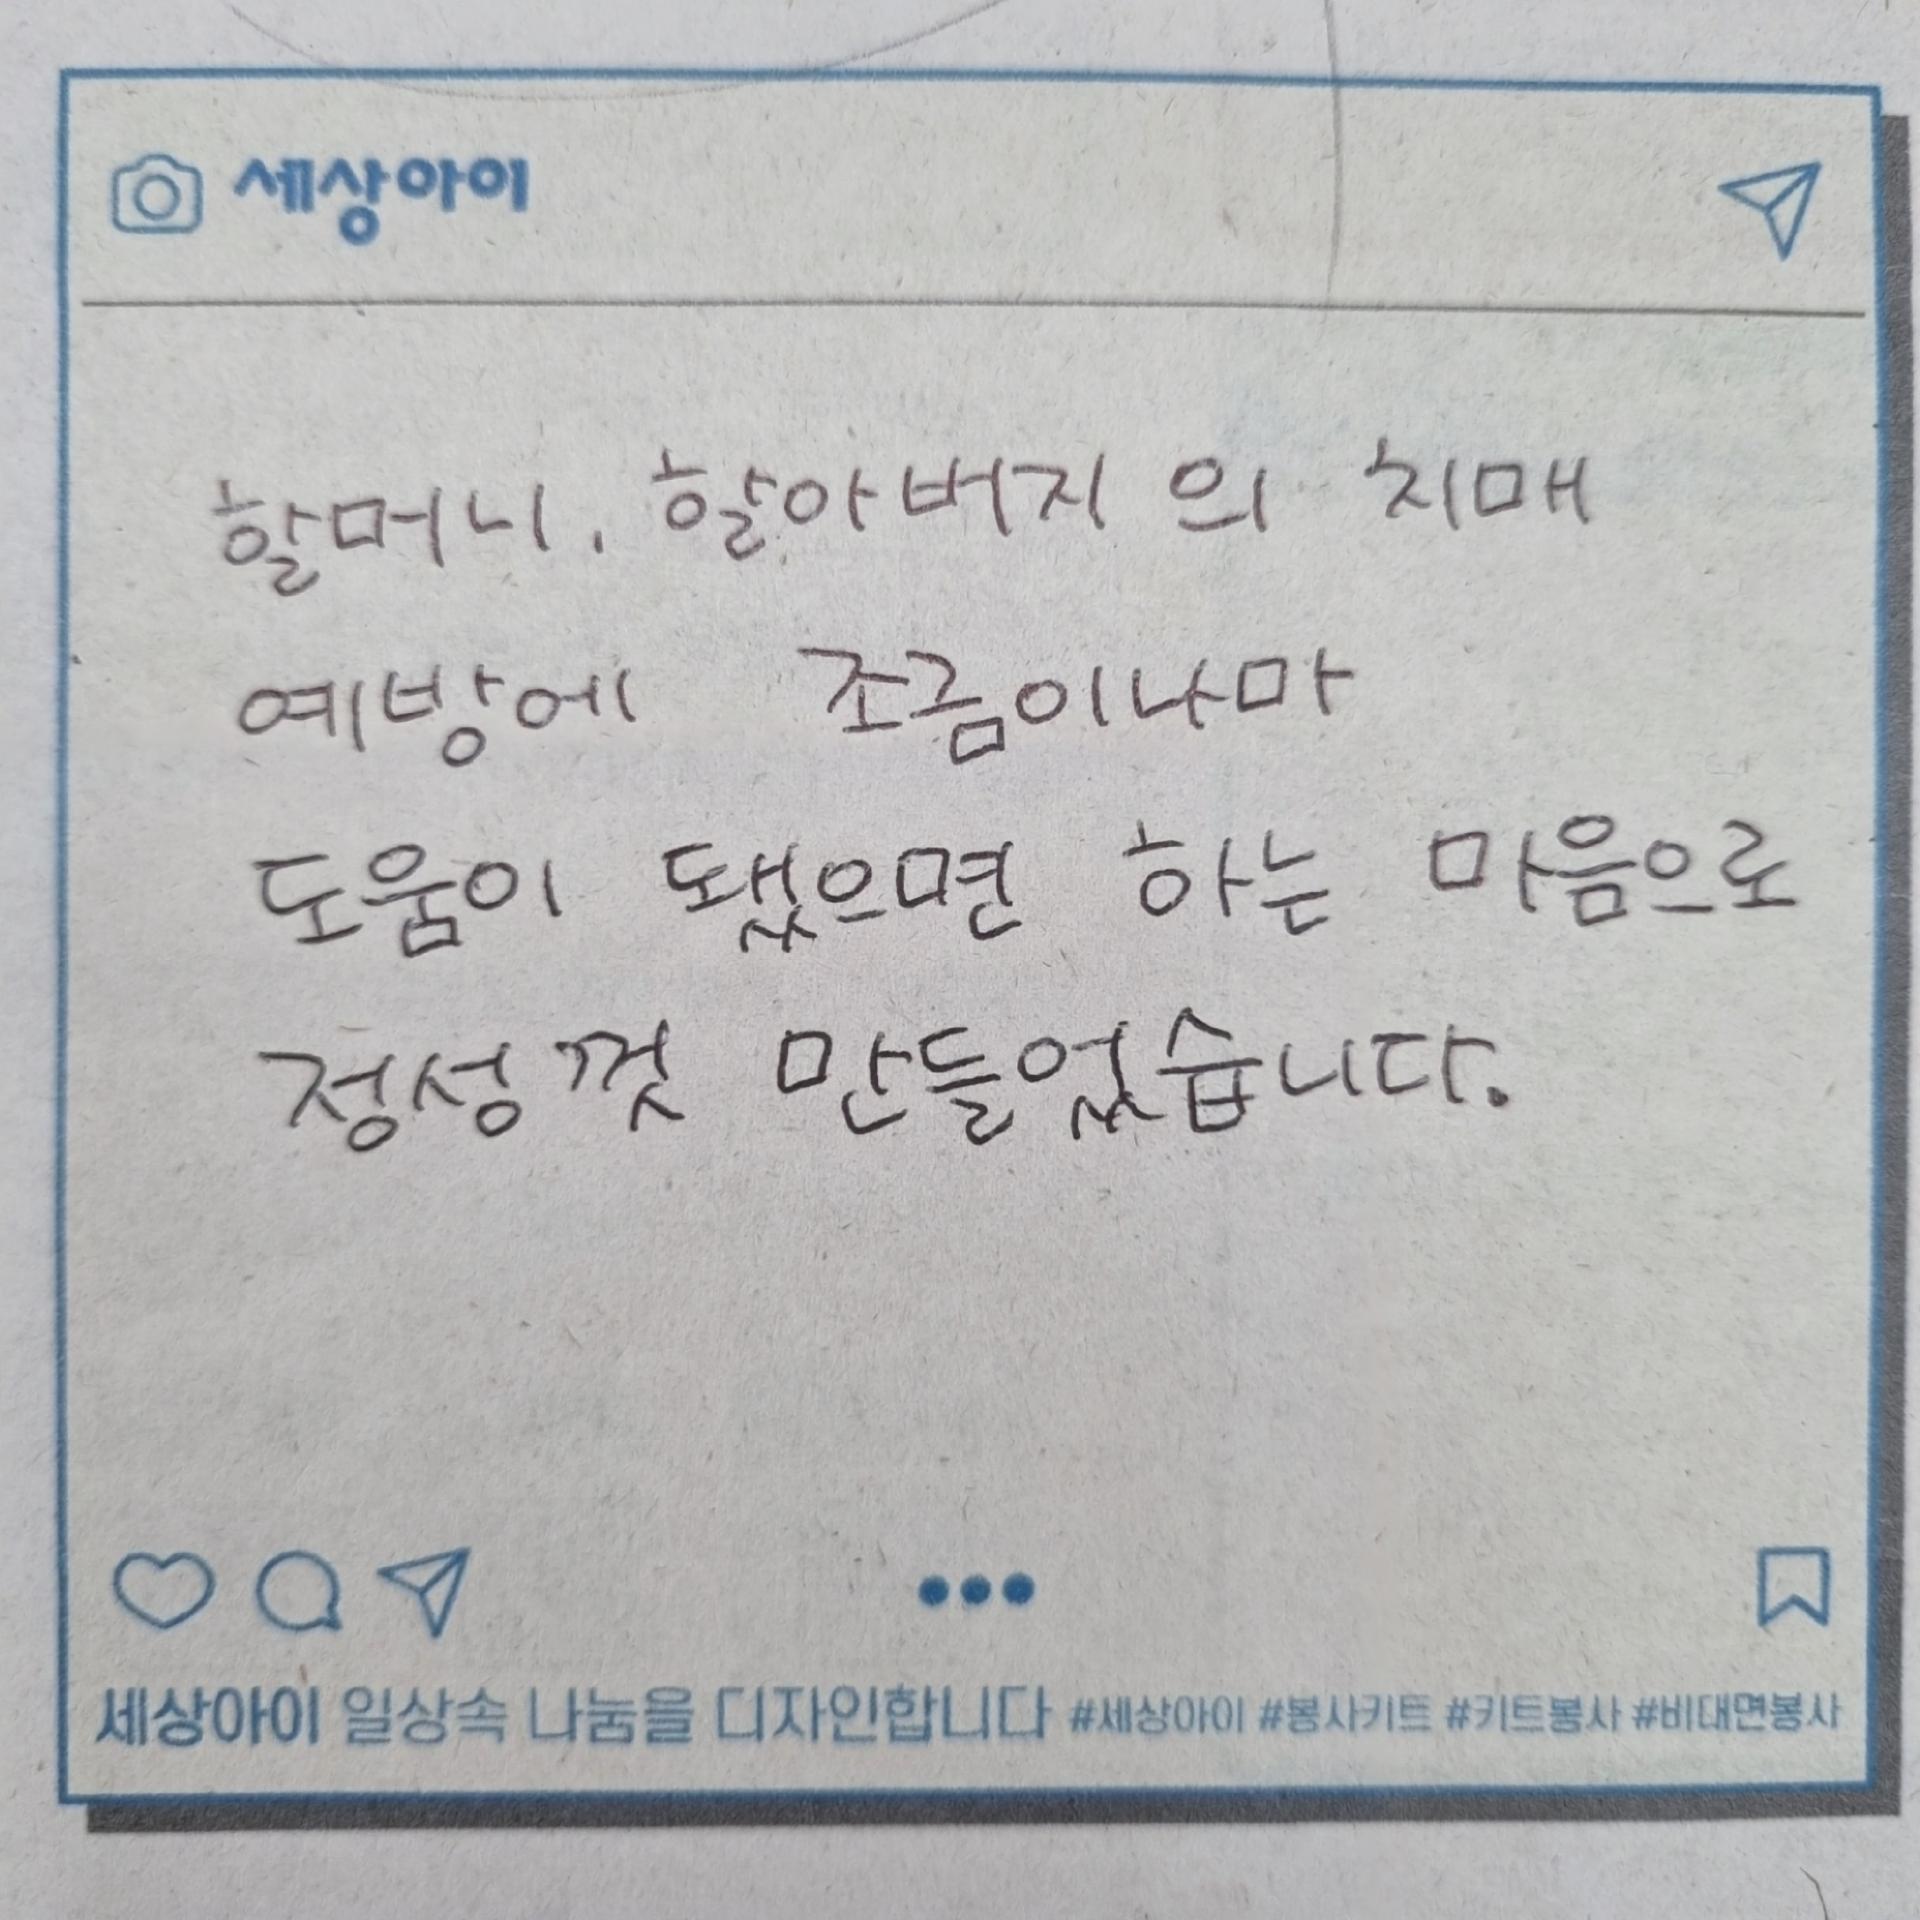 세상아이
할머니, 할아버지 의 치매
예방에 조금이나마
도움이 됐으면 하는 마음으로
정성껏 만들었습니다.
세상아이 일상속 나눔을 디자인합니다 #세상아이 #봉사키트 #키트봉사 #비대면봉사